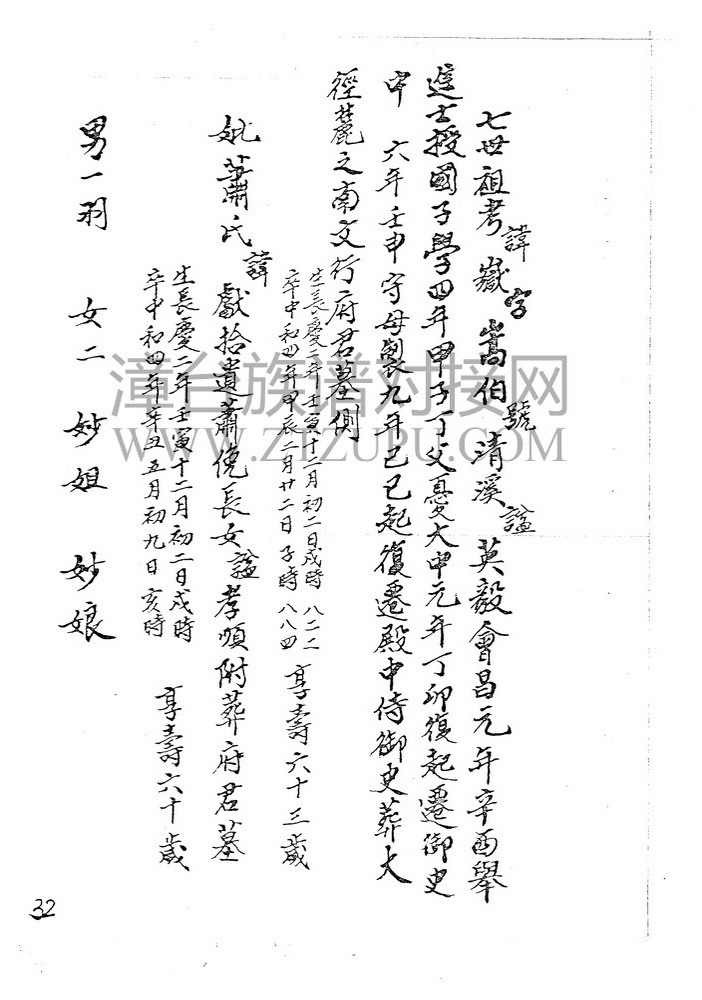 七世祖考諱嶽字嵩伯號清溪謚英毅會昌元年辛酉舉
進士授國子學四年甲子丁父憂大中元年丁卯復起遷御史
中 六年壬申守母制九年己巳起復遷殿中侍御史葬大
徑麓之南文行府君墓側
生長慶二年壬寅十二月初二日戌時 八二二
卒中和四年甲辰二月廿二日子時 八八四
享壽六十三歲
妣蕭氏諱獻拾遺蕭俛長女謚孝順附葬府君墓
生長慶二年壬寅十二月初二日戌時
卒中和四年辛丑五月初九日亥時
享壽六十歲
男一羽 女二 妙姐 妙娘
漳台族谱对接网
WWW.ZTZUPU.COM
32